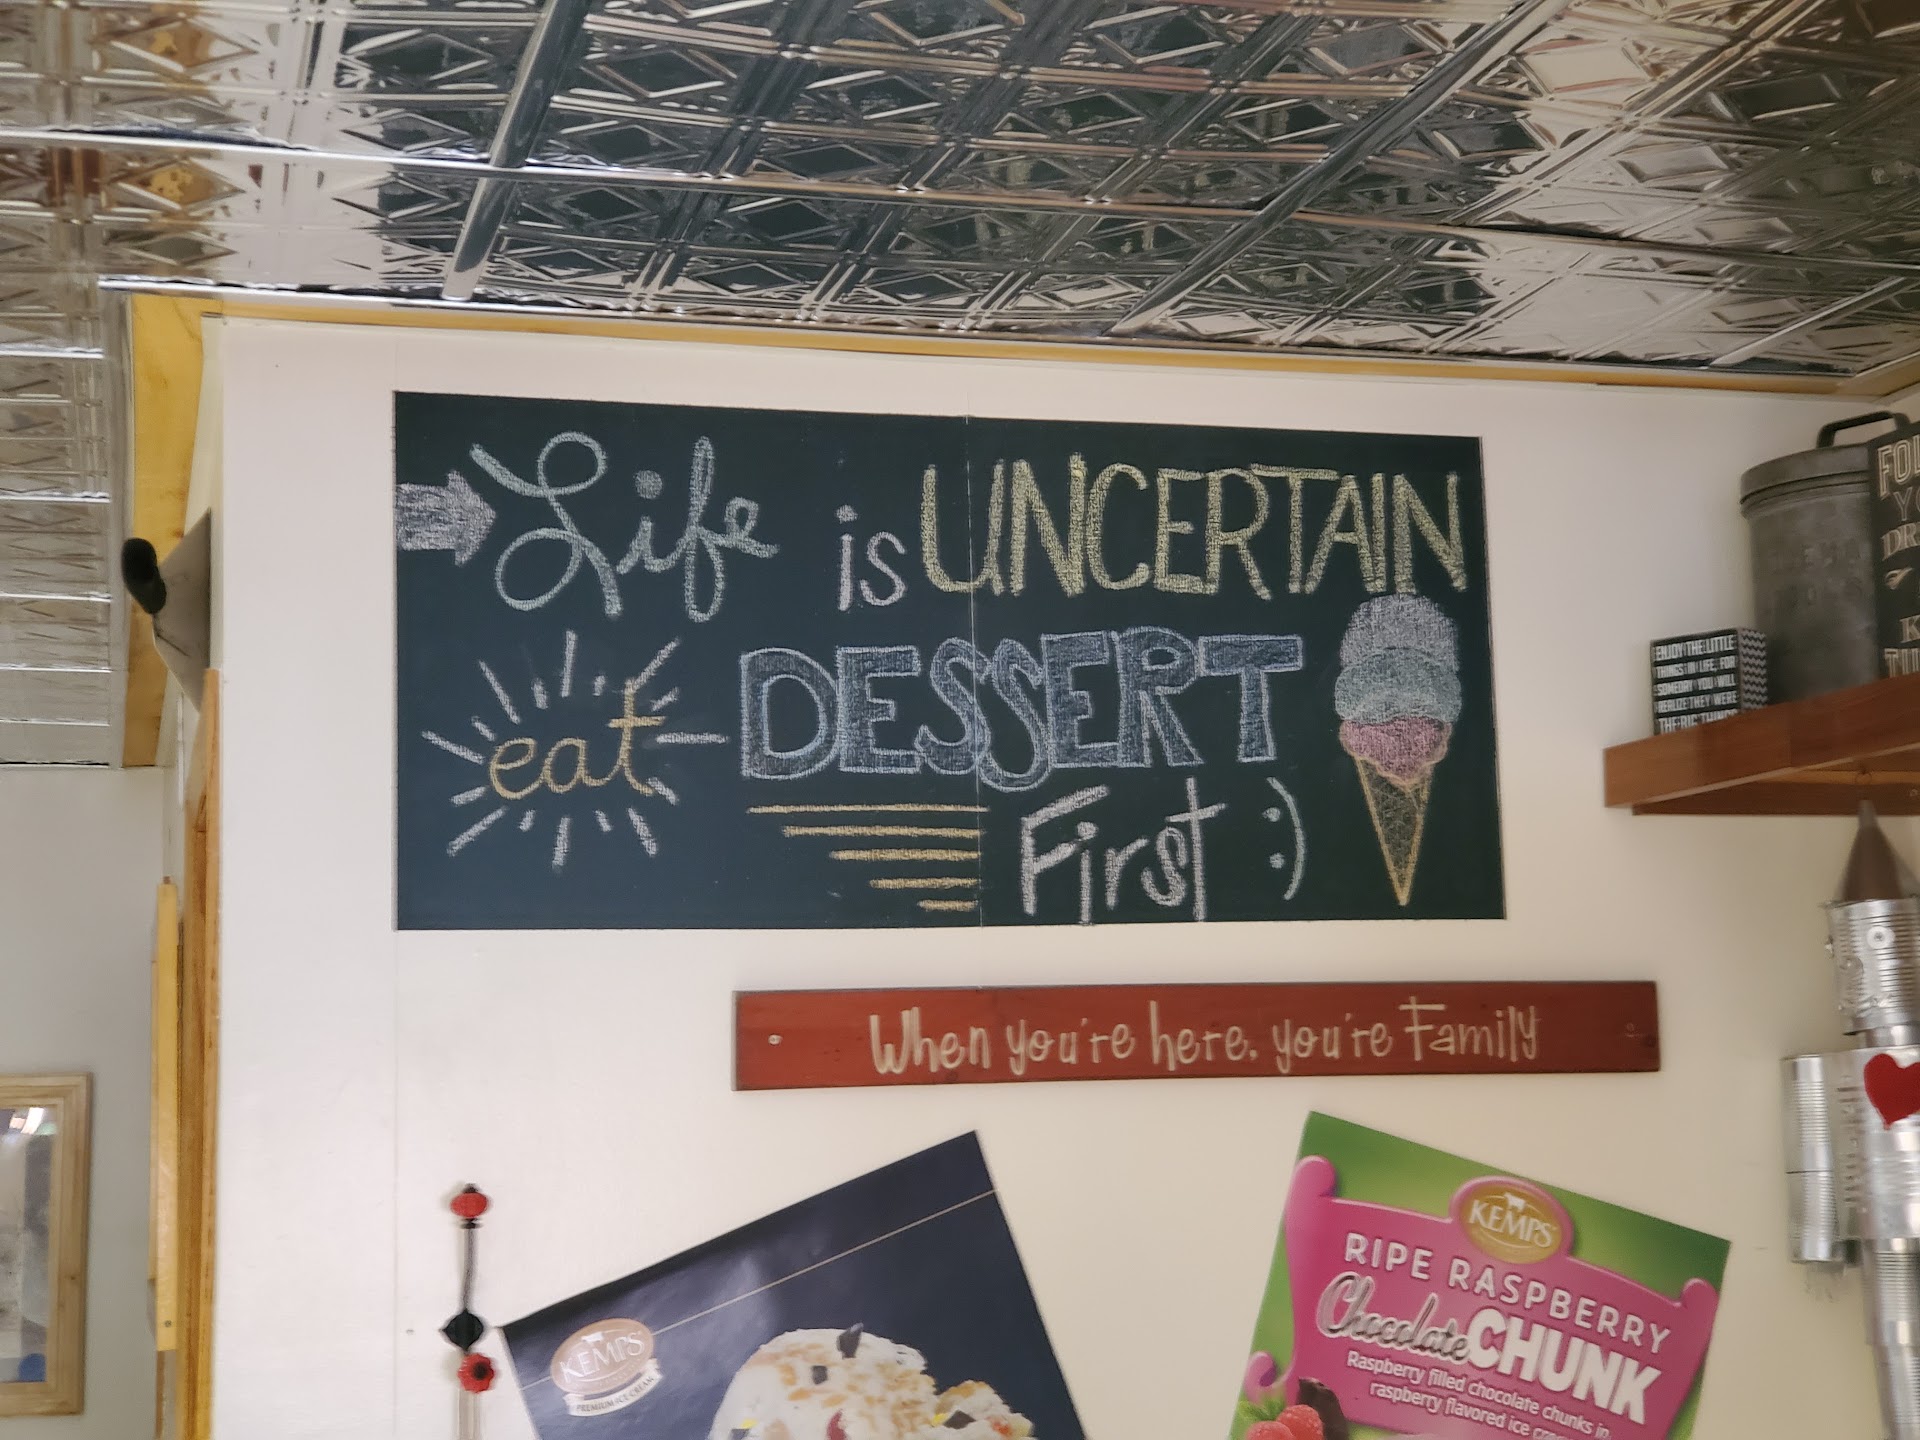 Life is UNCERTAIN
eat DESSERT
First :)
When you're here, you're Family
ENJOY THE LITTLE
THINGS IN LIFE, FOR
SOMEDAY YOU WILL
REALIZE THEY WERE
THE BIG THINGS
KEMPS
PREMIUM ICE CREAM
KEMPS
RIPE RASPBERRY
Chocolate CHUNK
Raspberry filled chocolate chunks in
raspberry flavored ice